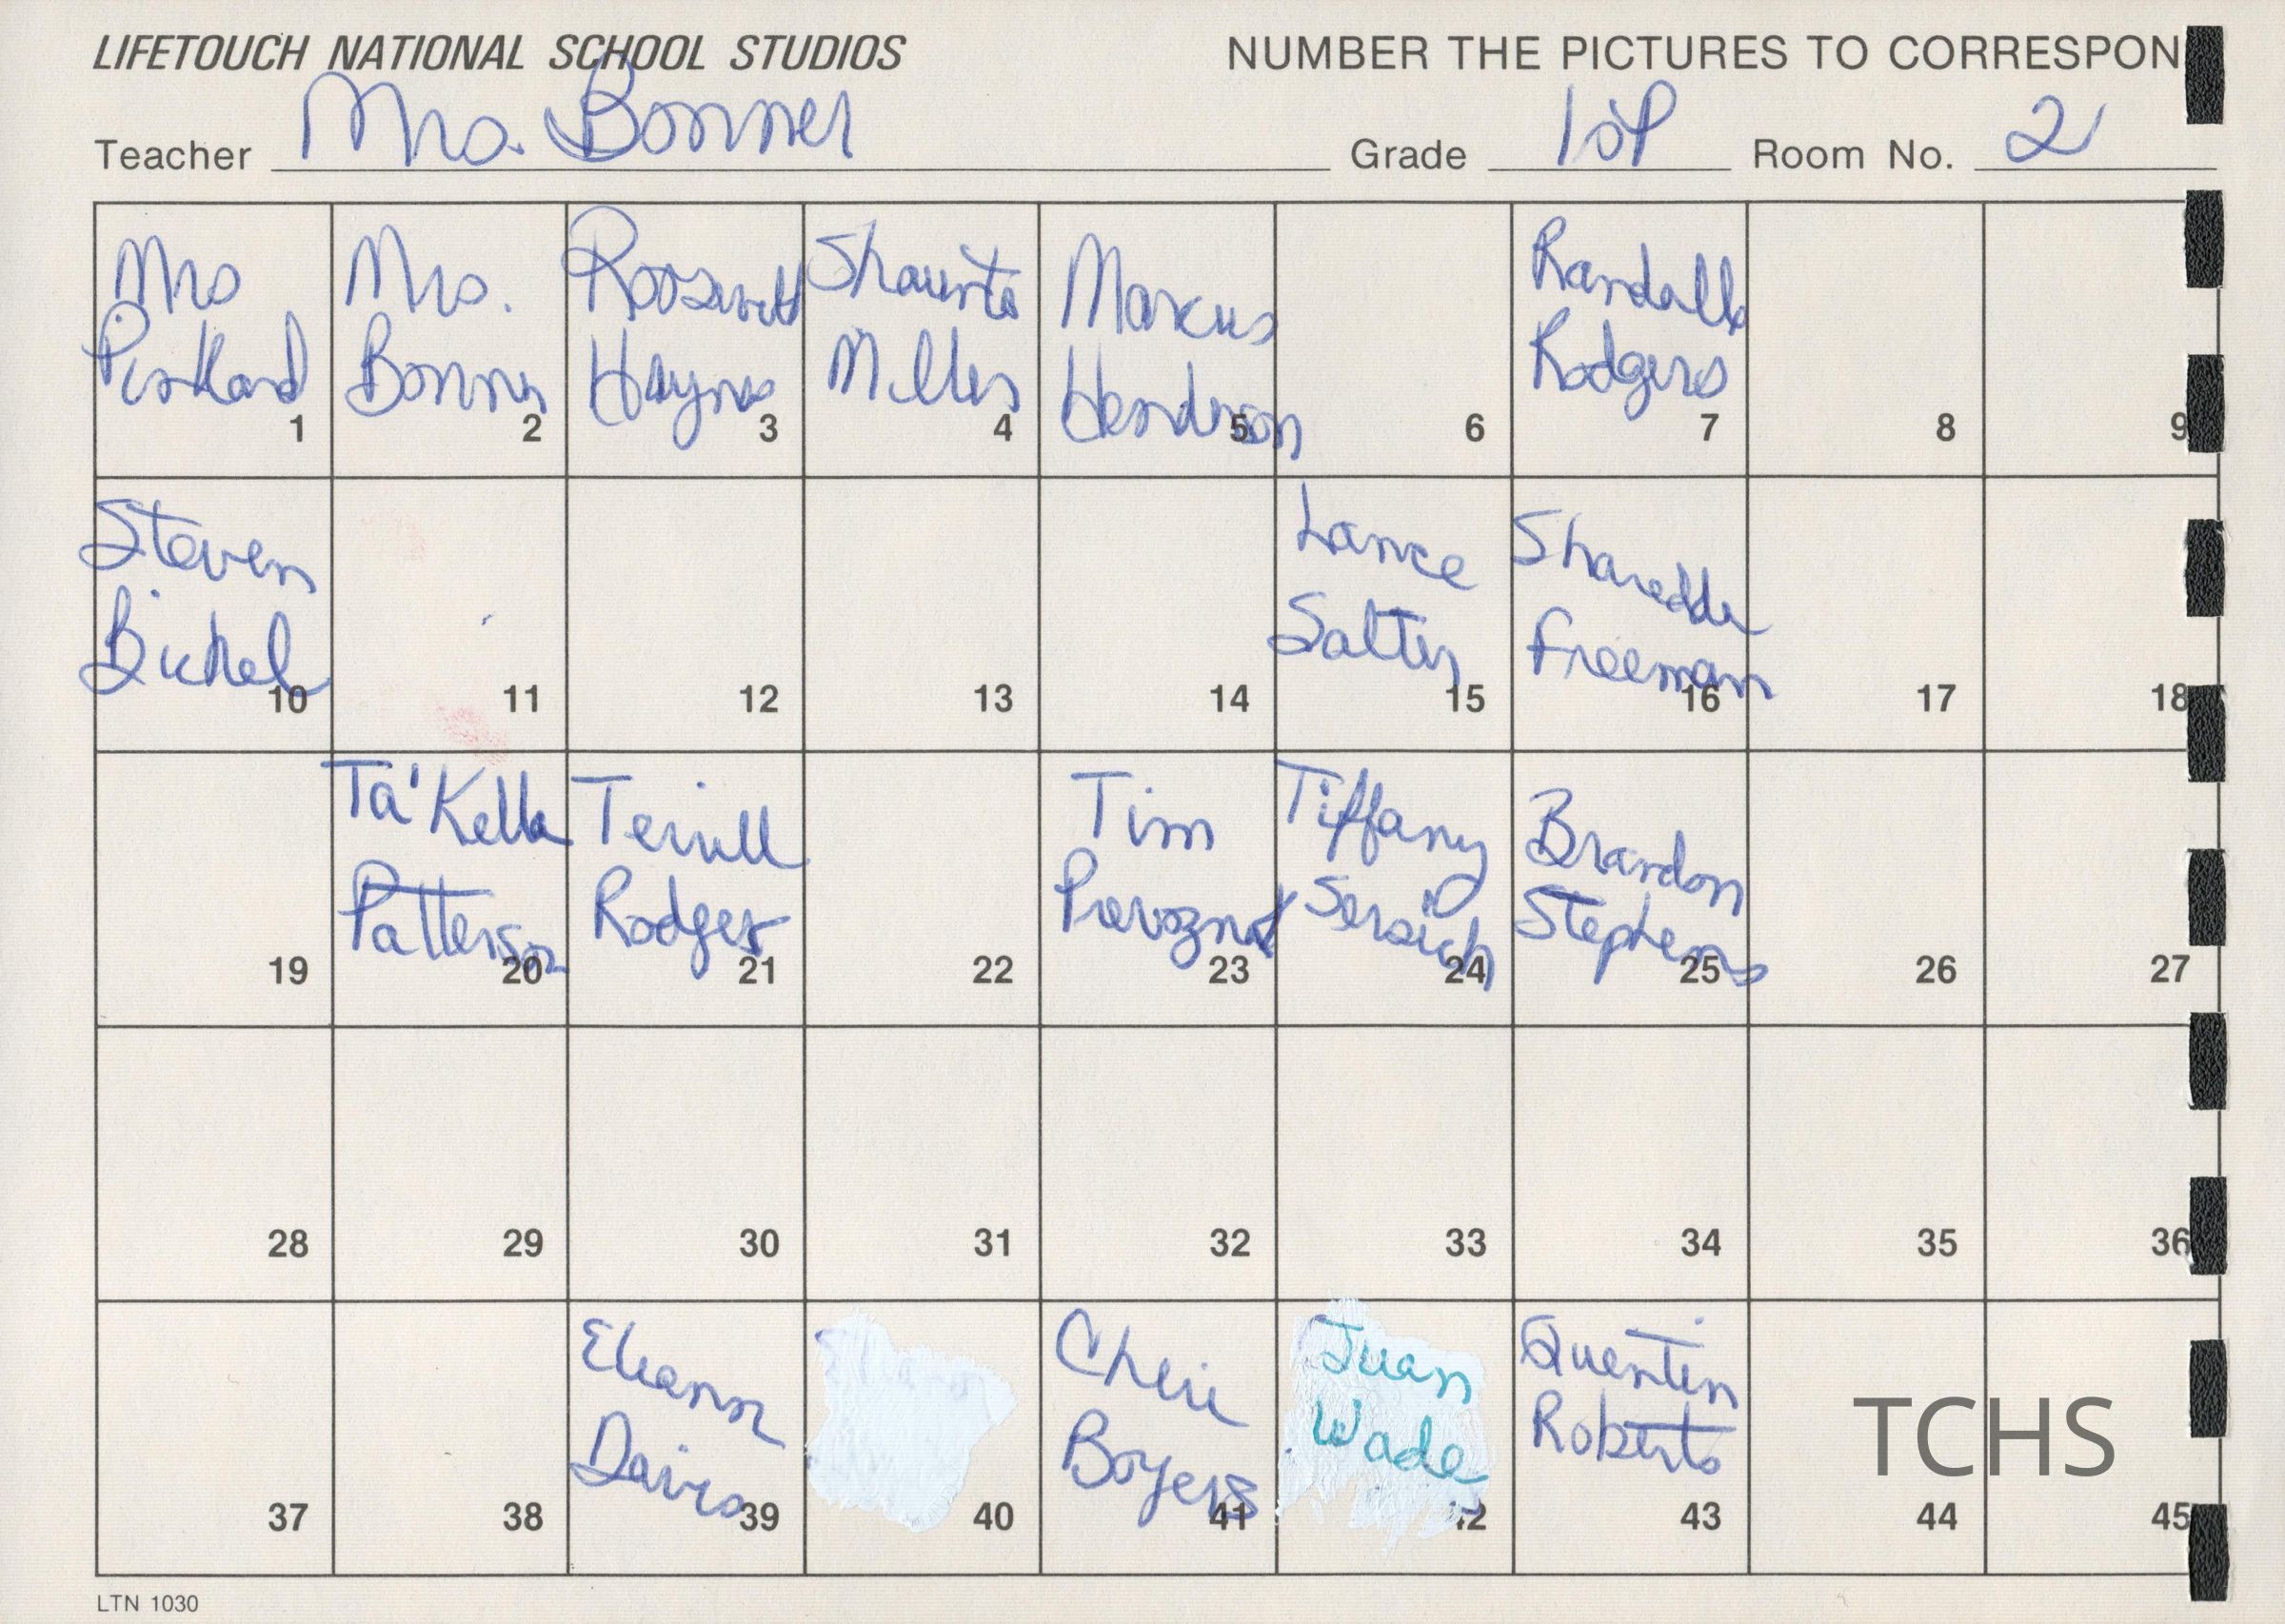 LIFETOUCH NATIONAL SCHOOL STUDIOS
NUMBER THE PICTURES TO CORRESPON
Teacher Mrs. Bonner Grade 1st Room No. 2
Mrs
1
Mrs.
Bonner
2
Roosevelt
Haynes
3
Shaunta
Miller
4
Marcus
Henderson
5
6
Randall
Rodgers
7
8
9
Steven
Bickel
10
11
12
13
14
Lance
Salter
15
Freeman
16
17
18
19
Ta'Kella
Patterson
20
Terrill
Rodger
21
22
Tim
23
Tiffany
24
Brandon
Stephens
25
26
27
28
29
30
31
32
33
34
35
36
37
38
Eleanor
Davis
39
40
Cheri
Boyers
41
Juan
Wade
42
Quentin
Roberts
43
44
45
TCHS
LTN 1030